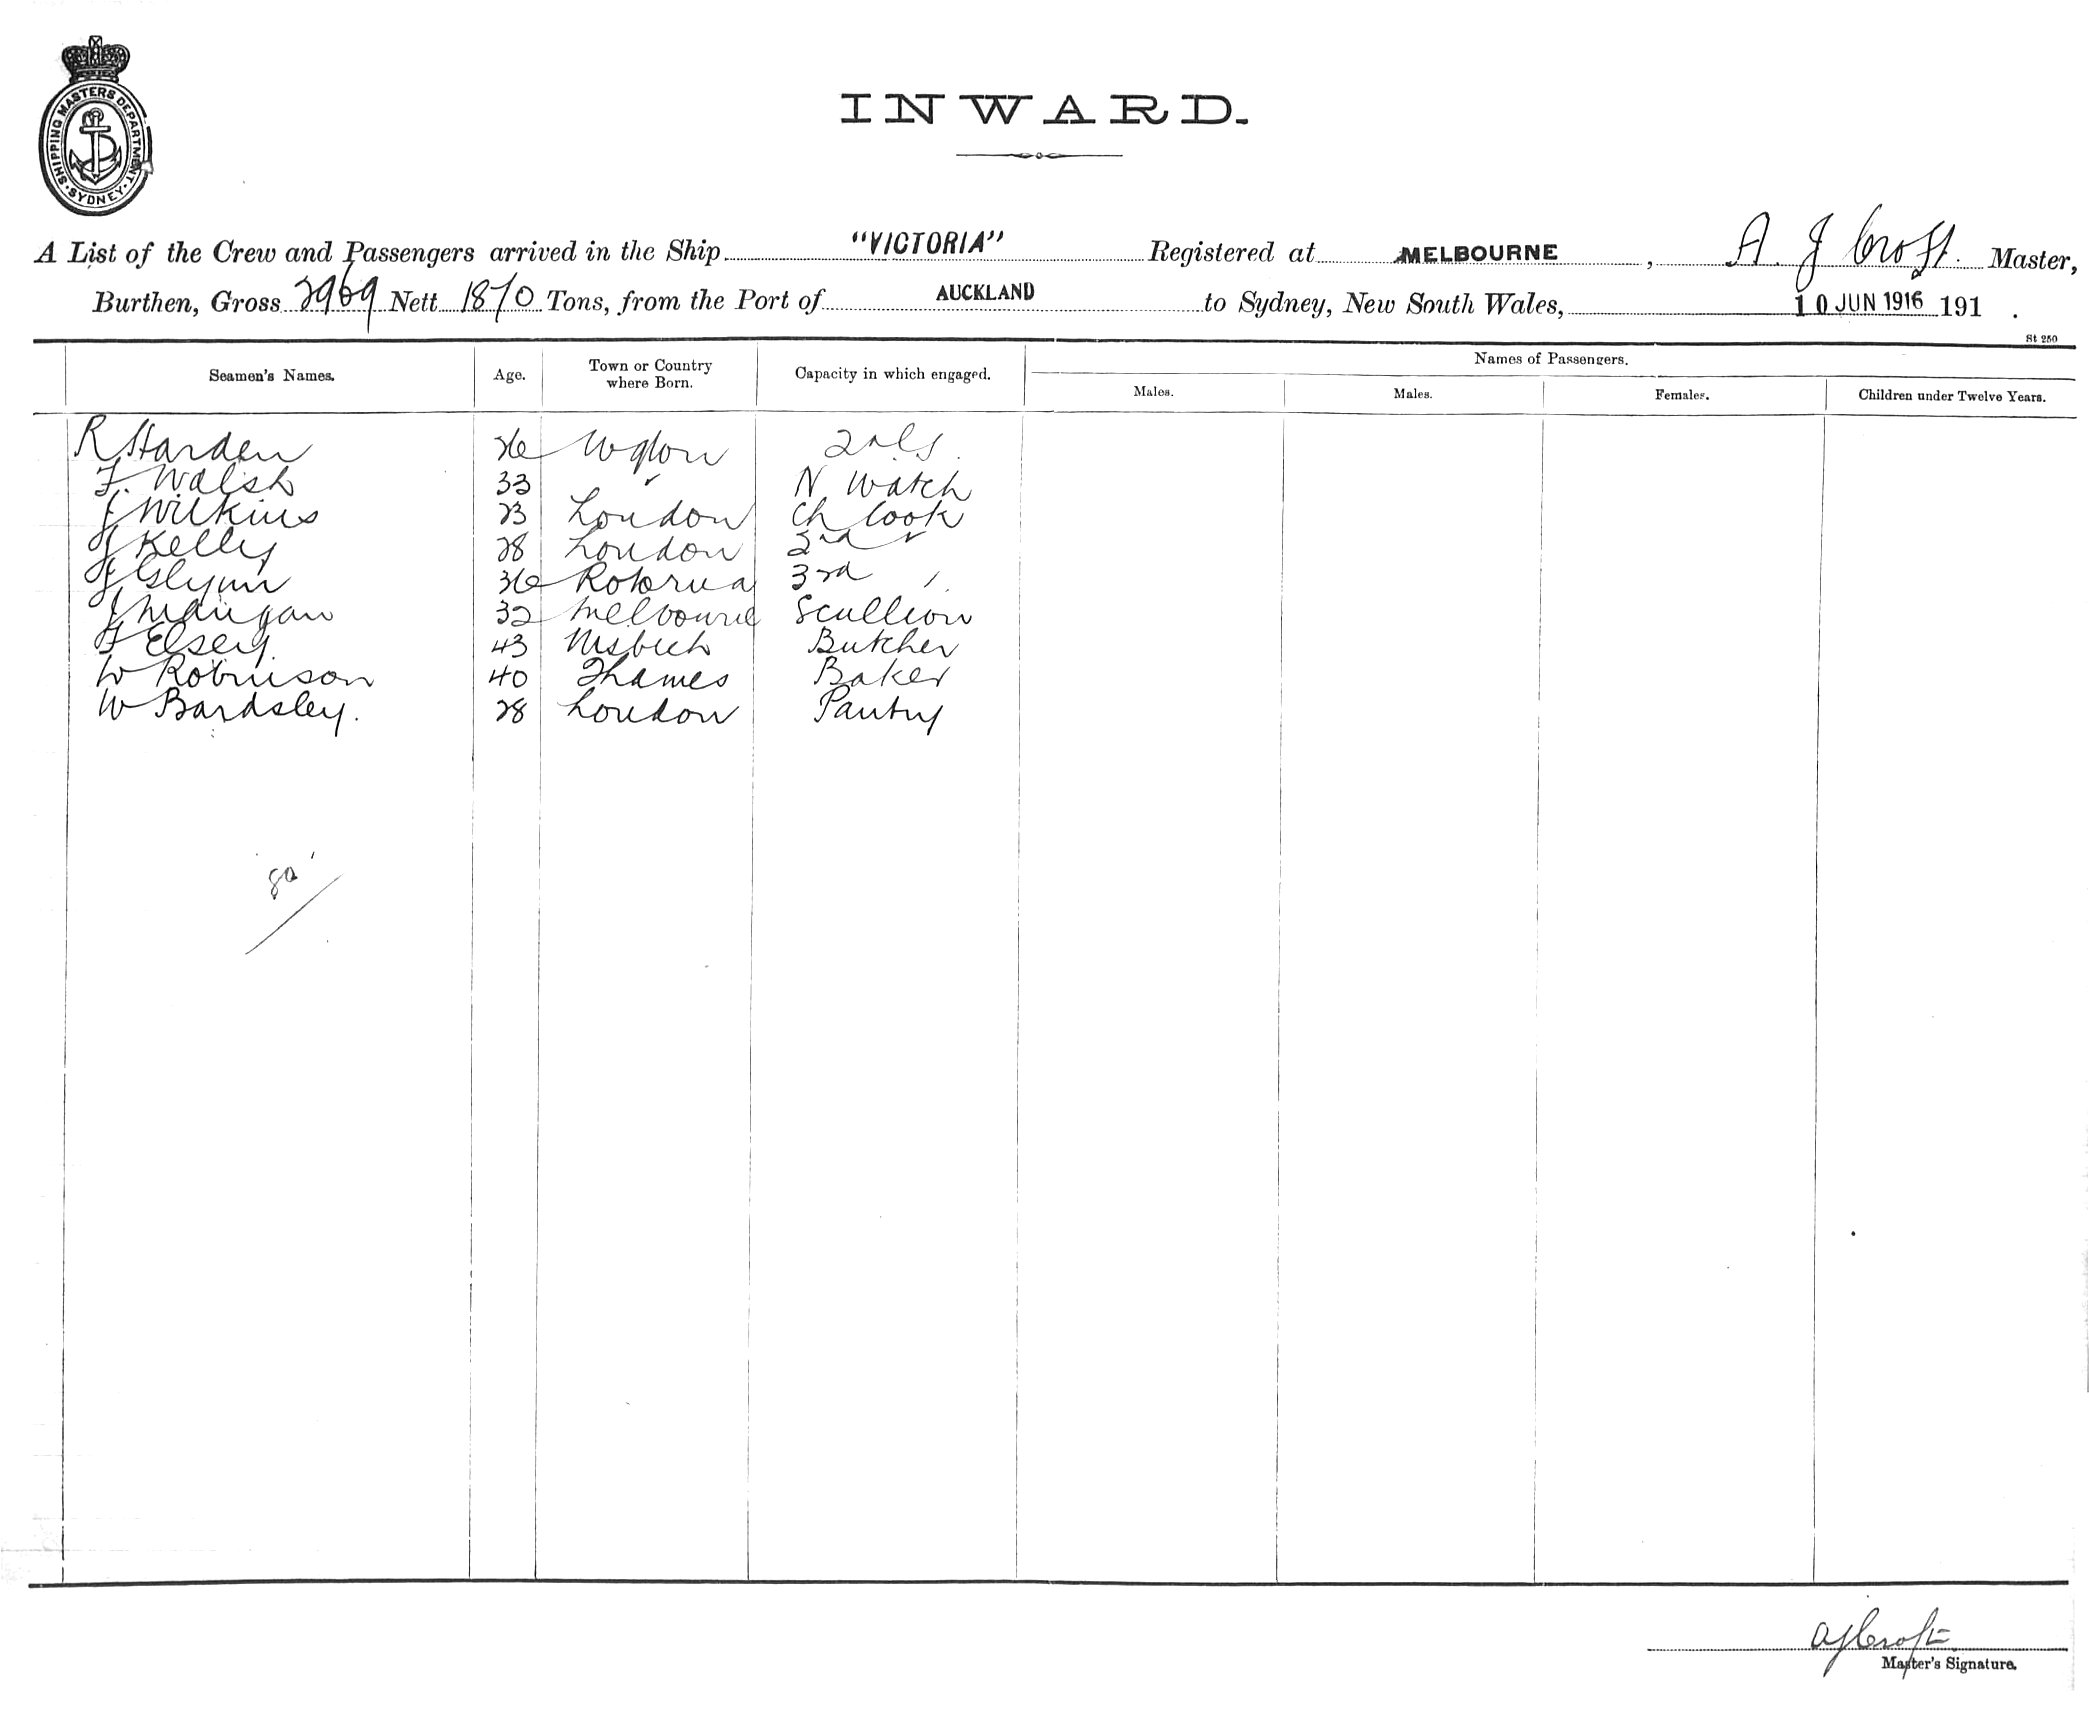 SHIPPING MASTERS DEPARTMENT · SYDNEY ·
INWARD.
A List of the Crew and Passengers arrived in the Ship "VICTORIA" Registered at MELBOURNE, A J Croft. Master,
Burthen, Gross 2969 Nett 1870 Tons, from the Port of AUCKLAND to Sydney, New South Wales, 10 JUN 1916 191 .
St 250
Seamen's Names. Age. Town or Country where Born. Capacity in which engaged. Names of Passengers.
Males. Males. Females. Children under Twelve Years.
R Harden 26 Wgton 2nd S.
F. Walsh 33 " N Watch
J Wilkins 23 London Ch Cook
J Kelly 28 London 2nd "
J Glynn 36 Rotorua 3rd "
J Mangan 32 Melbourne Scullion
F Elsey. 43 Wisbech Butcher
W Robinson 40 Thames Baker
W Bardsley. 28 London Pantry
AJCroft
Master's Signature.